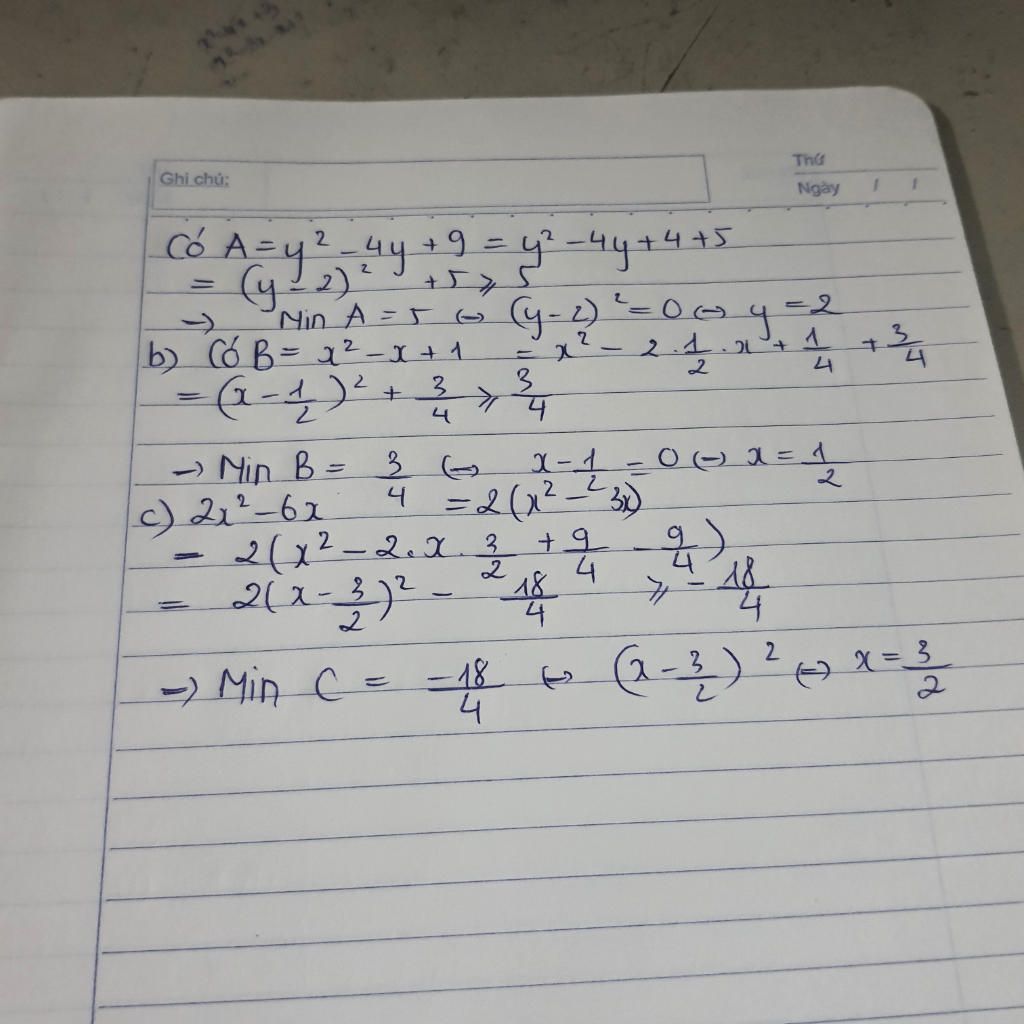 Ghi chú:
Thứ
Ngày / /
Có A = y² - 4y + 9 = y² - 4y + 4 + 5
= (y - 2)² + 5 ⩾ 5
→ Min A = 5 ↔ (y - 2)² = 0 ↔ y = 2
b) Có B = x² - x + 1 = x² - 2 . 1/2 . x + 1/4 + 3/4
= (x - 1/2)² + 3/4 ⩾ 3/4
→ Min B = 3/4 ↔ x - 1/2 = 0 ↔ x = 1/2
c) 2x² - 6x = 2(x² - 3x)
= 2(x² - 2 . x . 3/2 + 9/4 - 9/4)
= 2(x - 3/2)² - 18/4 ⩾ - 18/4
→ Min C = -18/4 ↔ (x - 3/2)² ↔ x = 3/2